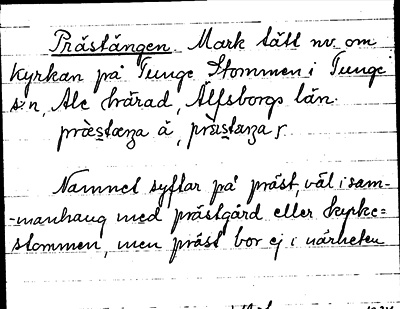 Prästängen. Mark tätt nv. om
kyrkan på Tunge Stommen i Tunge
s:n, Ale härad, Älfsborgs län.
Namnet syftar på präst, väl i sam-
-manhang med prästgård eller kyrko=
stommen, men präst bor ej i närheten